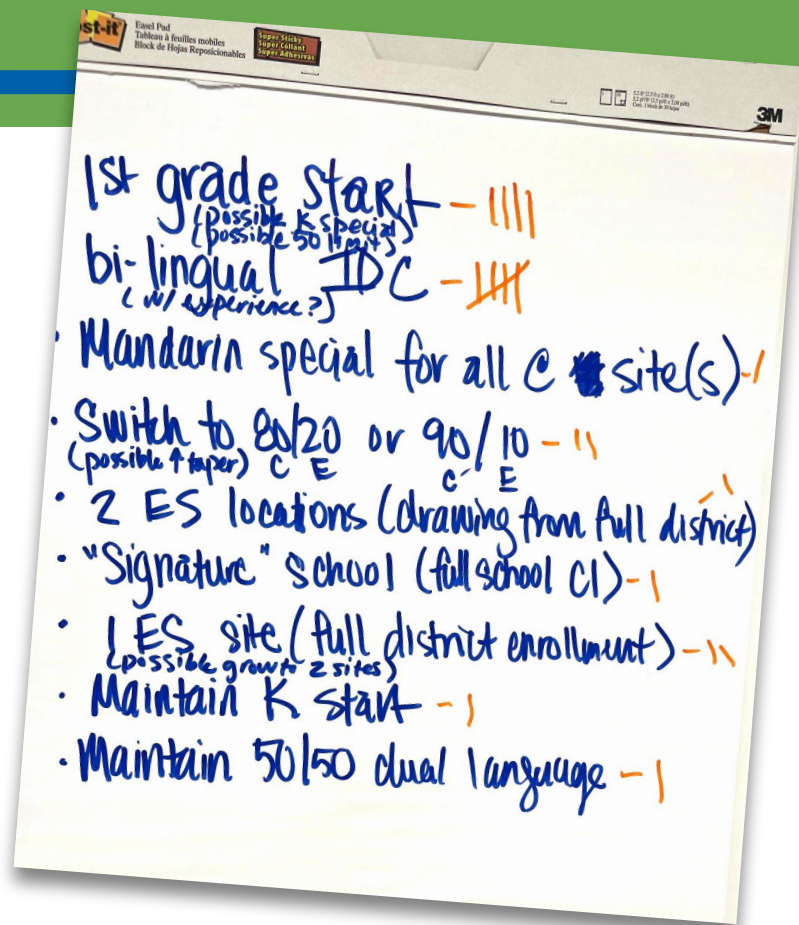 st-it
Easel Pad
Tableau à feuilles mobiles
Block de Hojas Reposicionables
Super Sticky
Super Collant
Super Adhesivas
3M
1st grade start - ||||
(possible K special)
(possible 50 limit)
bi-lingual IDC - 卌
(w/ experience?)
• Mandarin special for all @ site(s) - |
• Switch to 80/20 or 90/10 - ||
(possible ↑ taper) C E C E
• 2 ES locations (drawing from full district) - |
• "Signature" school (full school CI) - |
• 1 ES site (full district enrollment) - ||
(possible grow to 2 sites)
• Maintain K start - |
• Maintain 50/50 dual language - |